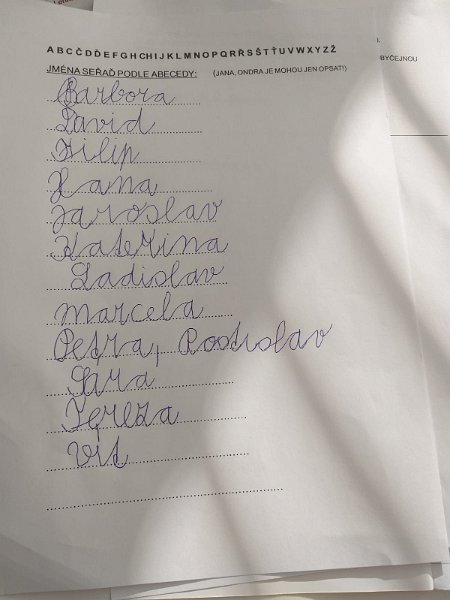 A B C Č D Ď E F G H CH I J K L M N O P Q R Ř S Š T Ť U V W X Y Z Ž
JMÉNA SEŘAĎ PODLE ABECEDY: (JANA, ONDRA JE MOHOU JEN OPSAT!)
BYČEJNOU
Barbora
David
Filip
Hana
Jaroslav
Kateřina
Ladislav
Marcela
Petra, Rostislav
Sára
Tereza
Vít